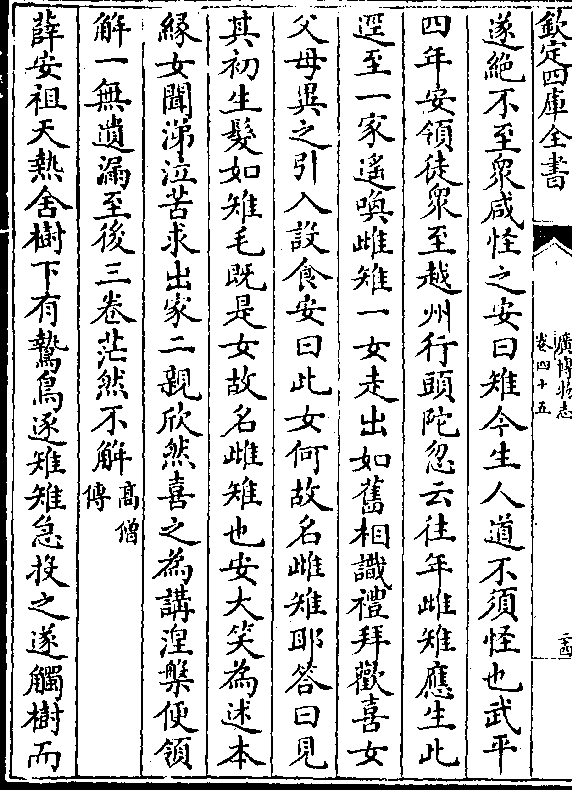 欽定四庫全書
廣博物志
卷四十五
遂絕不至衆咸怪之安曰雉今生人道不須怪也武平
四年安領徒衆至越州行頭陀忽云往年雌雉應生此
逕至一家遙喚雌雉一女走出如舊相識禮拜歡喜女
父母異之引入設食安曰此女何故名雌雉耶答曰見
其初生髮如雉毛既是女故名雌雉也安大笑為述本
縁女聞涕泣苦求出家二親欣然喜之為講涅槃便領
解一無遺漏至後三卷茫然不解高僧傳
薛安祖天熱舍樹下有鷙鳥逐雉雉急投之遂觸樹而